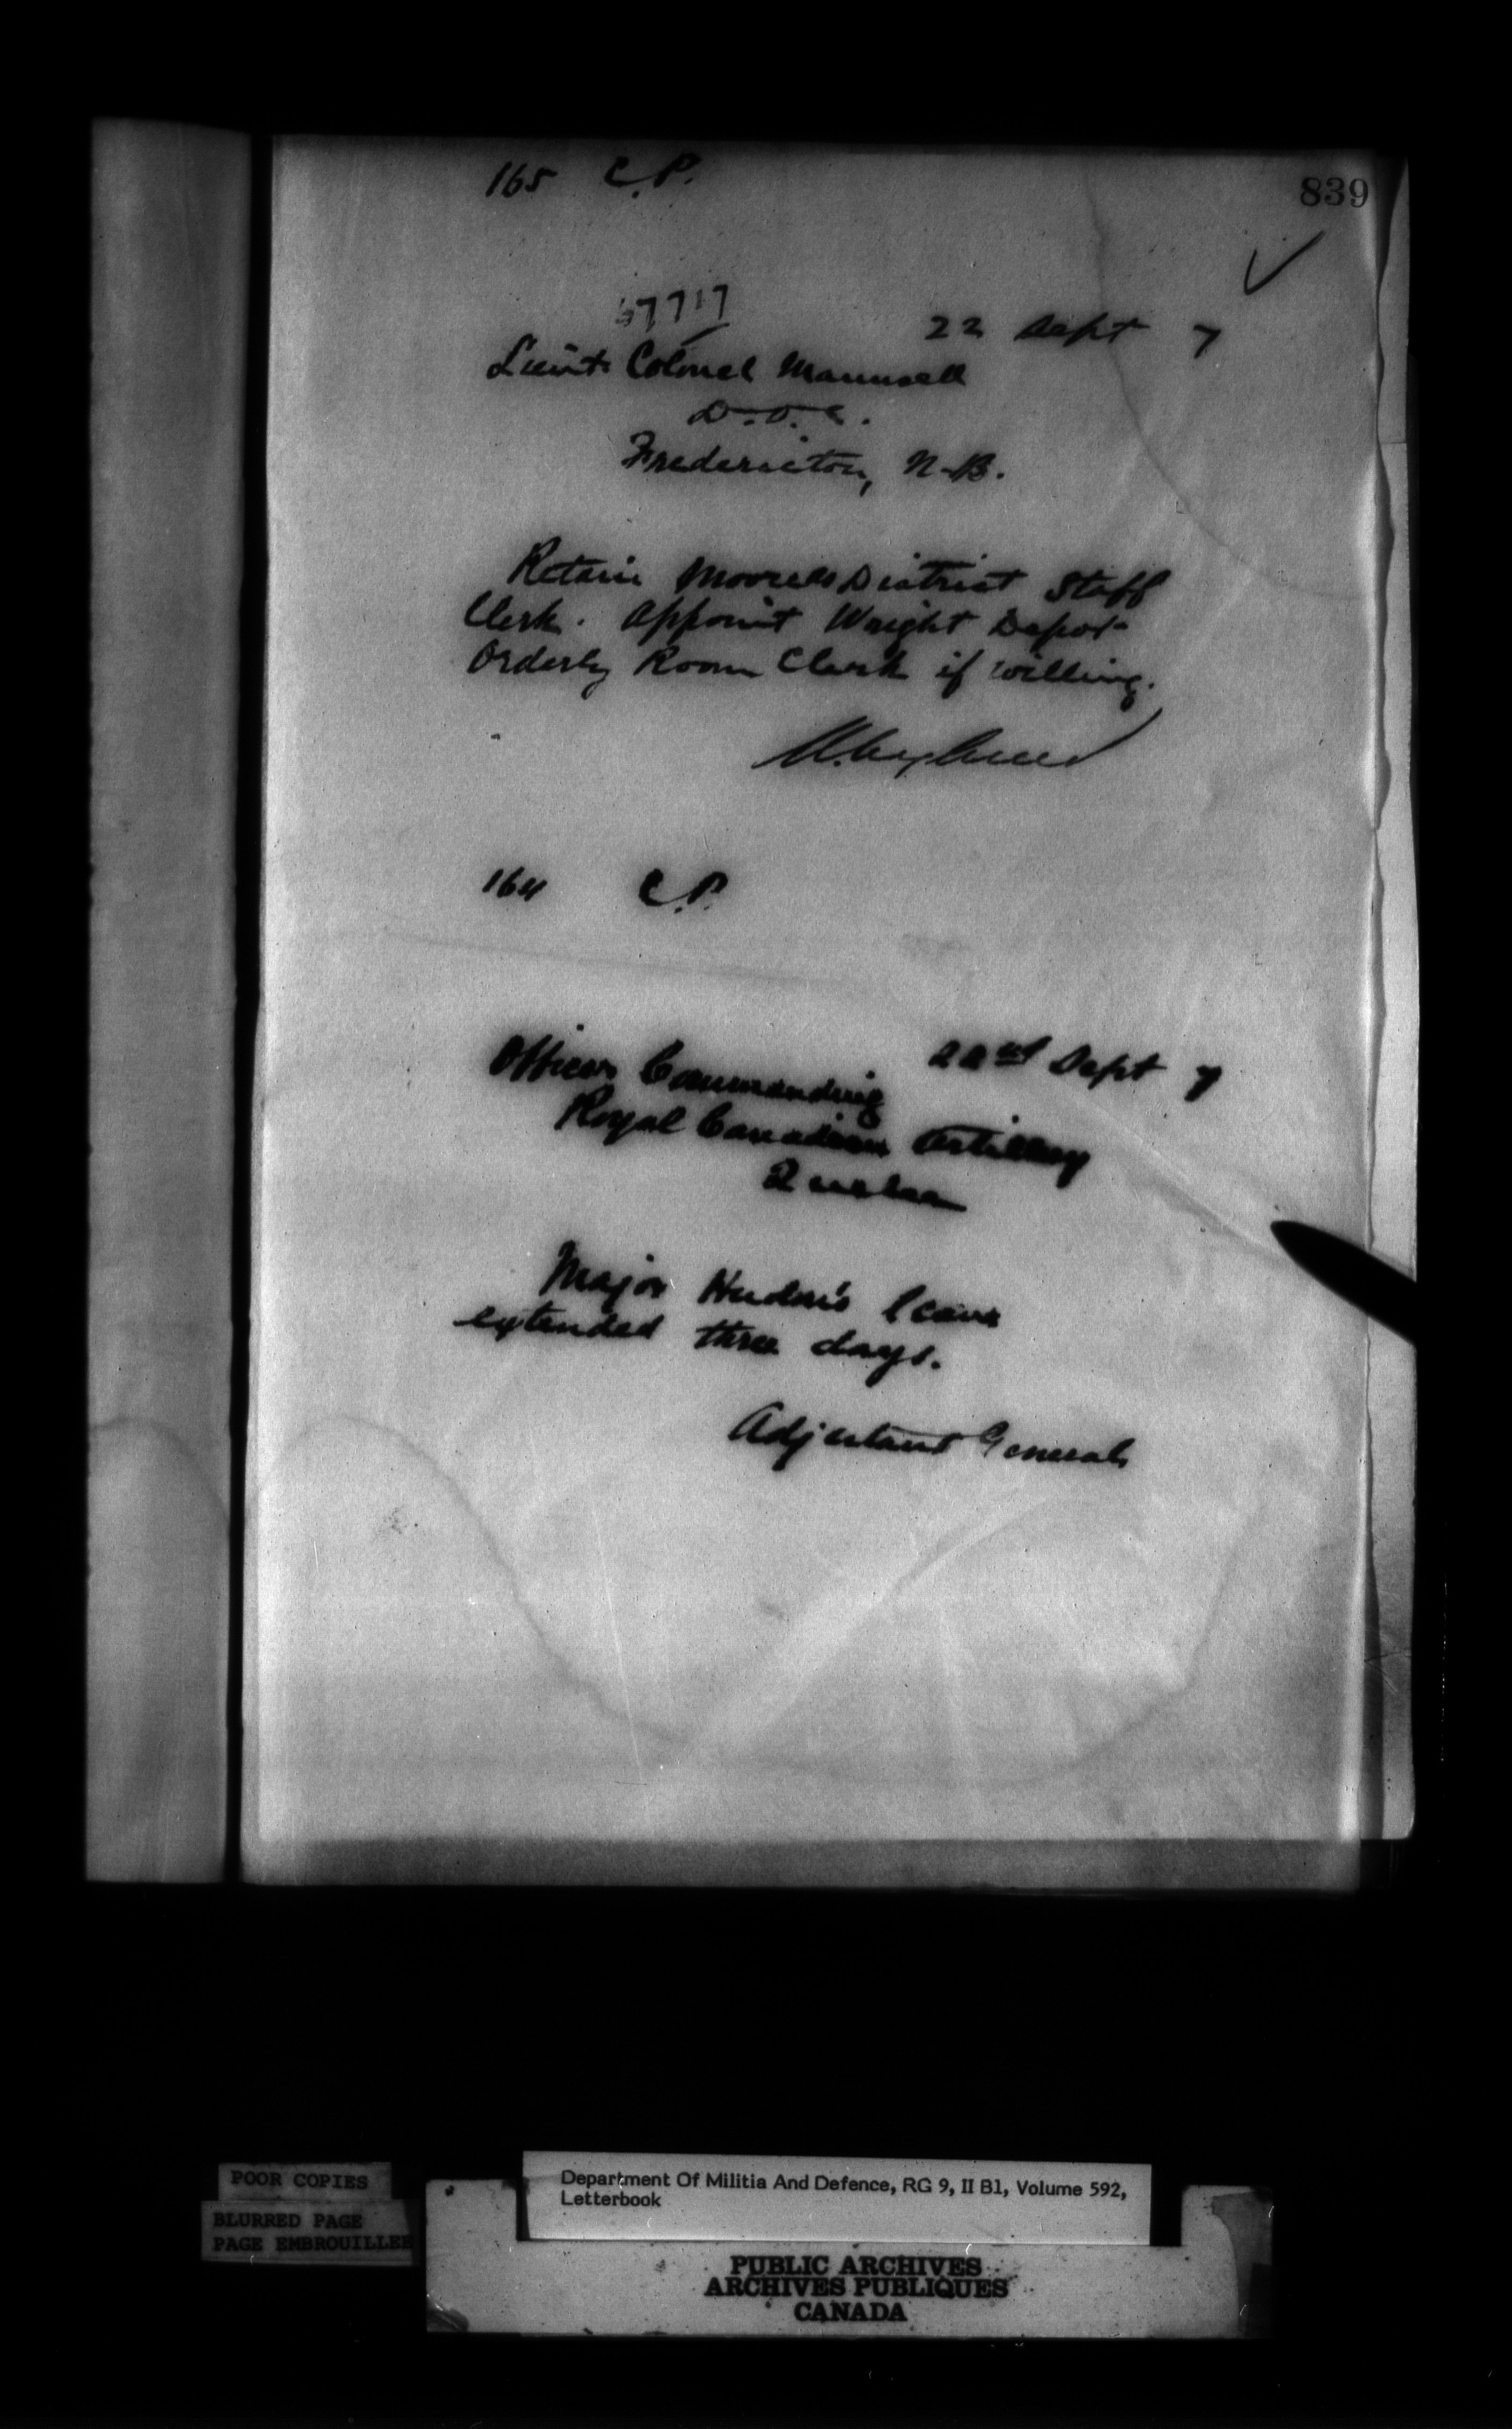 165 C.P.
839
67717
22 Sept 7
Lieut. Colonel Maunsell
D.O.C.
Fredericton, N.B.
Retain Moore as District Staff
Clerk. Appoint Wright Depot
Orderly Room Clerk if willing.
164 C.P.
22nd Sept 7
Officer Commanding
Royal Canadian Artillery
Quebec
Major Hudon's leave
extended three days.
Adjutant General
POOR COPIES
BLURRED PAGE
PAGE EMBROUILLEE
Department Of Militia And Defence, RG 9, II B1, Volume 592,
Letterbook
PUBLIC ARCHIVES
ARCHIVES PUBLIQUES
CANADA